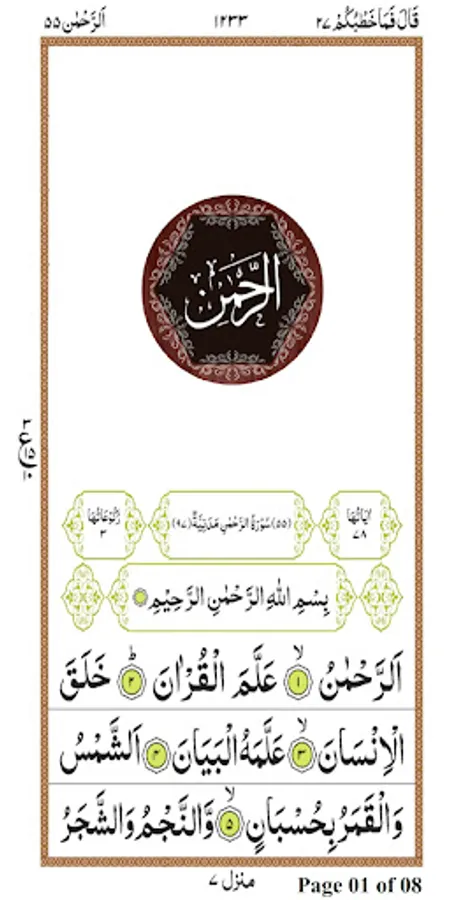 قَالَ فَمَا خَطْبُكُمْ ٢٧ ١٢٣٣ اَلرَّحْمٰن ٥٥
الرَّحْمٰن
اٰيَاتُهَا ٧٨ (٥٥) سُوْرَةُ الرَّحْمٰنِ مَدَنِيَّةٌ (٩٧) رُكُوْعَاتُهَا ٣
بِسْمِ اللهِ الرَّحْمٰنِ الرَّحِيْمِ
اَلرَّحْمٰنُ ۙ ١ عَلَّمَ الْقُرْاٰنَ ؕ ٢ خَلَقَ
الْاِنْسَانَ ۙ ٣ عَلَّمَهُ الْبَيَانَ ٤ اَلشَّمْسُ
وَالْقَمَرُ بِحُسْبَانٍ ۙ ٥ وَّالنَّجْمُ وَالشَّجَرُ
منزل ٧ Page 01 of 08